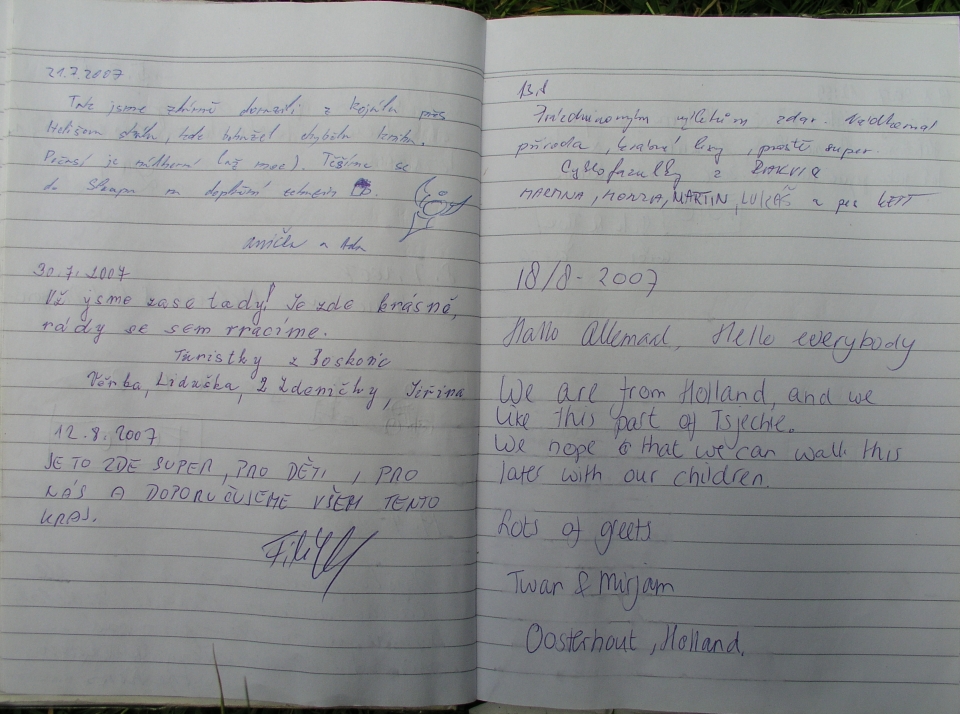 21.7.2007
Tak jsme zdárně dorazili z Kojálu přes
skálu, kde bohužel chyběla kniha.
Počasí je nádherné (až moc). Těšíme se
do Sloupu na doplnění tekutin
anička a Ada
30.7.2007
Už jsme zase tady! Je zde krásně,
rády se sem vracíme.
Turistky z Boskovic
Věrka, Liduška, 2 Zdeničky, Jiřina
12.8.2007
JE TO ZDE SUPER, PRO DĚTI, PRO
NÁS A DOPORUČUJEME VŠEM TENTO
KRAJ.
13.8
výletům zdar. Nádherná
příroda, krásné lesy, prostě super.
z RAKVIC
MARTINA, HONZA, MARTIN, LUKÁŠ a pes
18/8-2007
Hallo Allemaal, Hello everybody
We are from Holland, and we
like this part of Tsjechie.
We hope that we can walk this
later with our children.
Lots of greets
Twan & Mirjam
Oosterhout, Holland.